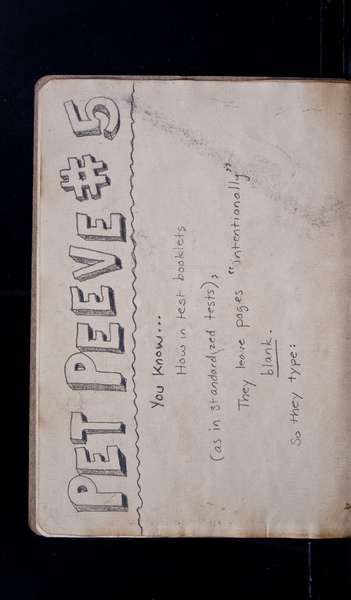 PET PEEVE # 5
You know...
How in test booklets
(as in standardized tests),
They leave pages "intentionally"
blank.
So they type: